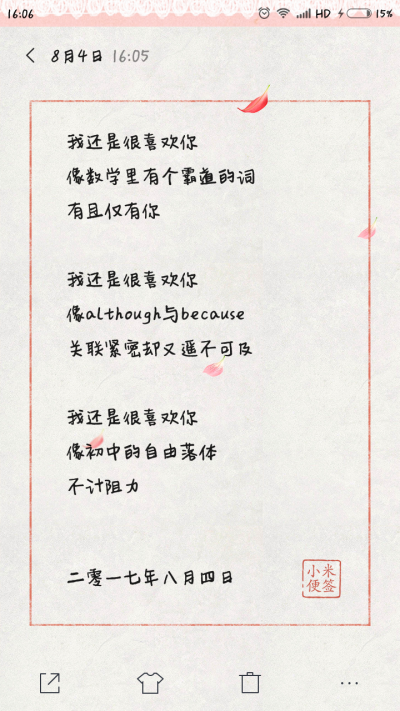 16:06
HD
15%
8月4日 16:05
我还是很喜欢你
像数学里有个霸道的词
有且仅有你
我还是很喜欢你
像although与because
关联紧密却又遥不可及
我还是很喜欢你
像初中的自由落体
不计阻力
二零一七年八月四日
小米
便签